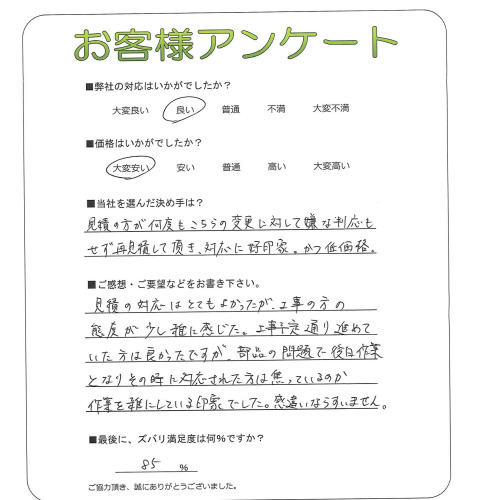 お客様アンケート
■弊社の対応はいかがでしたか？
大変良い 良い 普通 不満 大変不満
■価格はいかがでしたか？
大変安い 安い 普通 高い 大変高い
■当社を選んだ決め手は？
見積の方が何度もこちらの変更に対して嫌な対応も
せず再見積して頂き、対応に好印象。かつ低価格。
■ご感想・ご要望などをお書き下さい。
見積の対応はとてもよかったが、工事の方の
態度が少し雑に感じた。工事予定通り進めて
いた方は良かったですが、部品の問題で後日作業
となりその時に対応された方は焦っているのか
作業を雑にしている印象でした。感違いならすいません。
■最後に、ズバリ満足度は何％ですか？
85 ％
ご協力頂き、誠にありがとうございました。